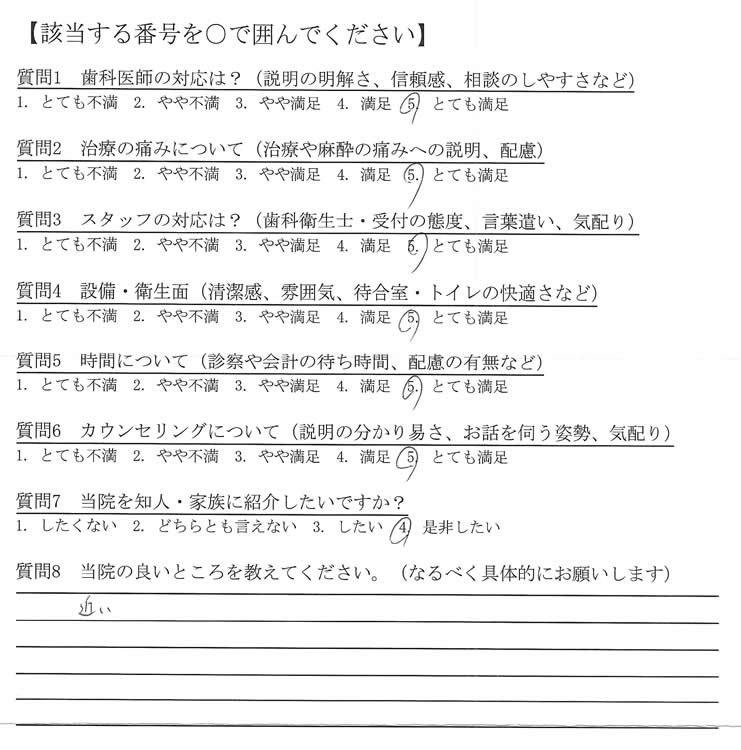 【該当する番号を〇で囲んでください】
質問1 歯科医師の対応は？（説明の明解さ、信頼感、相談のしやすさなど）
1. とても不満 2. やや不満 3. やや満足 4. 満足 5. とても満足
質問2 治療の痛みについて（治療や麻酔の痛みへの説明、配慮）
1. とても不満 2. やや不満 3. やや満足 4. 満足 5. とても満足
質問3 スタッフの対応は？（歯科衛生士・受付の態度、言葉遣い、気配り）
1. とても不満 2. やや不満 3. やや満足 4. 満足 5. とても満足
質問4 設備・衛生面（清潔感、雰囲気、待合室・トイレの快適さなど）
1. とても不満 2. やや不満 3. やや満足 4. 満足 5. とても満足
質問5 時間について（診察や会計の待ち時間、配慮の有無など）
1. とても不満 2. やや不満 3. やや満足 4. 満足 5. とても満足
質問6 カウンセリングについて（説明の分かり易さ、お話を伺う姿勢、気配り）
1. とても不満 2. やや不満 3. やや満足 4. 満足 5. とても満足
質問7 当院を知人・家族に紹介したいですか？
1. したくない 2. どちらとも言えない 3. したい 4 是非したい
質問8 当院の良いところを教えてください。（なるべく具体的にお願いします）
近い